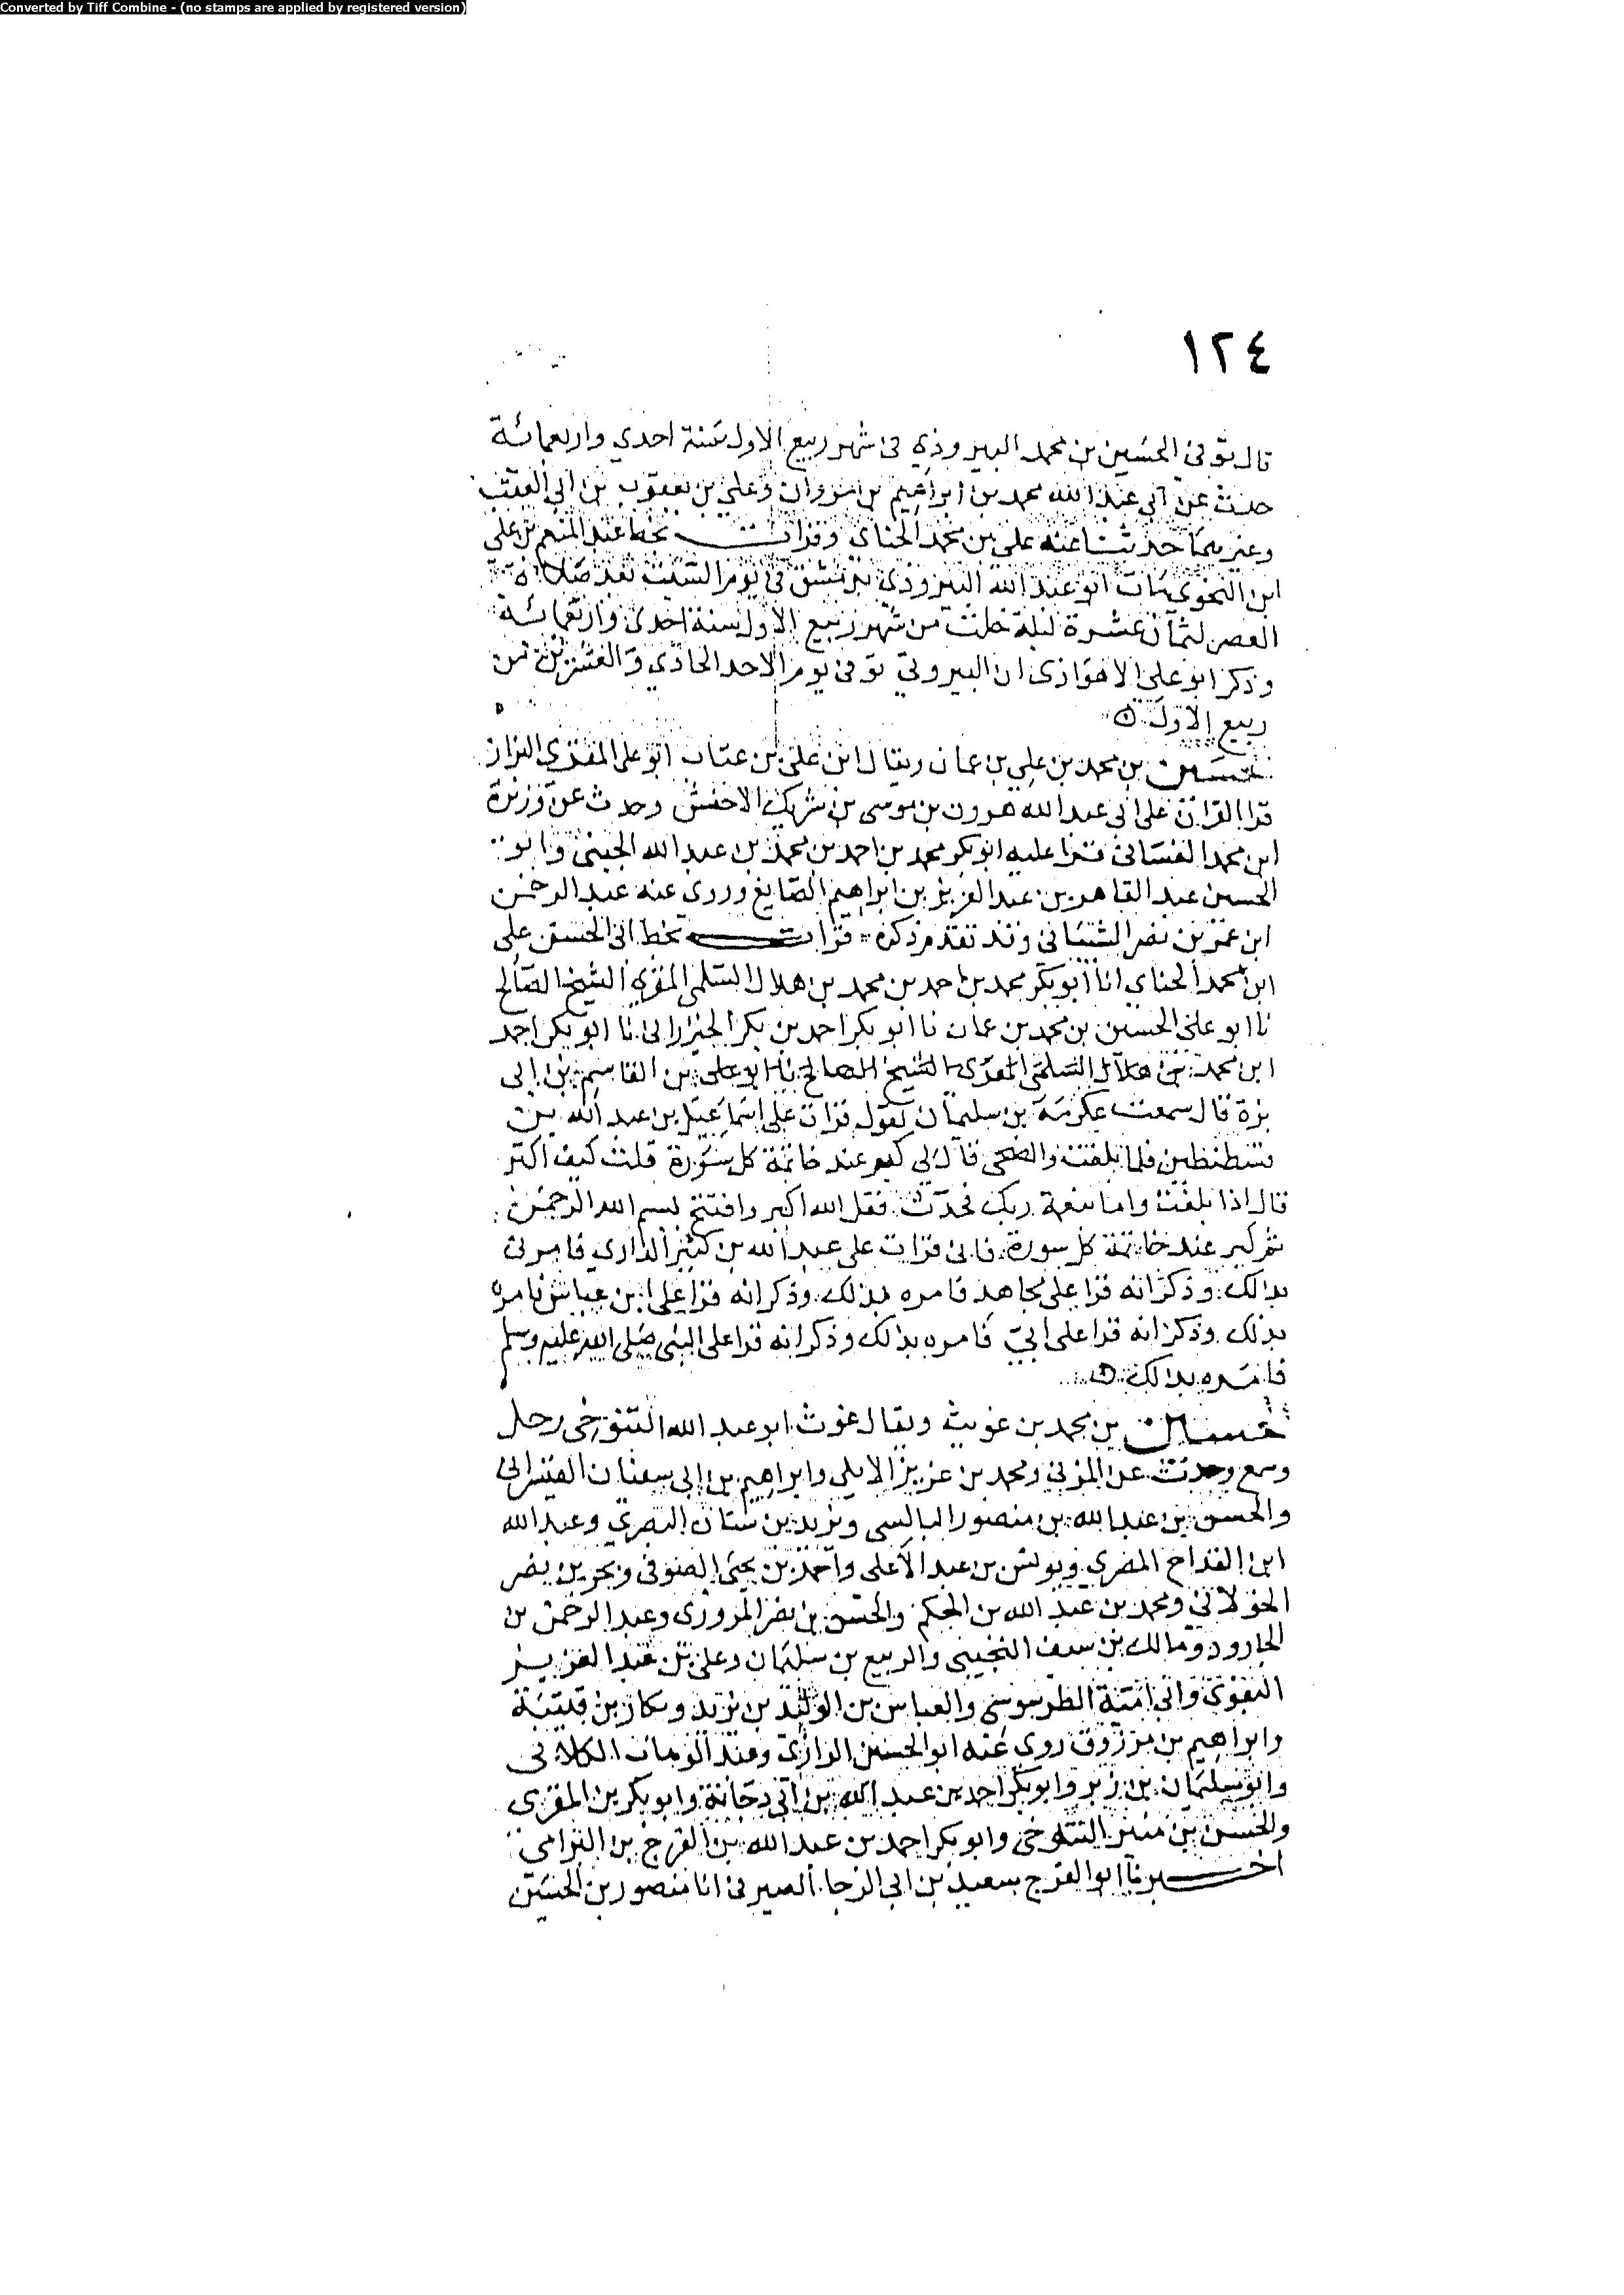 Converted by Tiff Combine - (no stamps are applied by registered version)
١٢٤
قال توفى الحسين بن محمد البيروذي فى شهر ربيع الاول سنة احدي واربعمائة
حدث عن ابي عبد الله محمد بن ابراهيم بن مروان وعلي بن يعقوب بن ابي العقب
وغيرهما حدثنا عنه علي بن محمد الحناى وقرات بخط عبد المنعم بن علي
ابن النحوى مات ابو عبد الله البيروذي بدمشق في يوم السبت بعد صلاة
العصر لثمان عشرة ليلة خلت من شهر ربيع الاول سنة احدى واربعمائة
وذكر ابو علي الاهوازى ان البيروتي توفى يوم الاحد الحادي والعشرين من
ربيع الاول
حسين بن محمد بن علي بن عمان ويقال ابن علي بن عتاب ابو على المقرى البزاز
قرا القران على ابى عبد الله هرون بن موسى بن شريك الاخفش وحدث عن وزيرة
ابن محمد الغسانى قرا عليه ابو بكر محمد بن احمد بن محمد بن عبد الله الجبنى وابو
الحسين عبد القاهر بن عبد العزيز بن ابراهيم الصايغ وروى عنه عبد الرحمن
ابن عمر بن نصر الشيبانى وقد تقدم ذكره قرات بخط ابى الحسن على
ابن محمد الحناي انا ابو بكر محمد بن احمد بن محمد بن هلال السلمى المقرى الشيخ الصالح
نا ابو على الحسين بن محمد بن عمان نا ابو بكر احمد بن بكر الجيزرانى نا ابو بكر احمد
ابن محمد بن هلال السلمى المقرى الشيخ الصالح نا ابو على بن القاسم بن ابى
بزة قال سمعت عكرمة بن سليمان يقول قرات على اسماعيل بن عبد الله بن
قسطنطين فلما بلغت والضحى قال لى كبر عند خاتمة كل سورة قلت كيف اكبر
قال اذا بلغت واما بنعمة ربك فحدث فقل الله اكبر وافتتح بسم الله الرحمن
ثم كبر عند خاتمة كل سورة فانى قرات على عبد الله بن كثير الدارى فامرنى
بذالك وذكر انه قرا على مجاهد فامره بذلك وذكر انه قرا على ابن عباس فامره
بذلك وذكر انه قرا على ابيّ فامره بذالك وذكر انه قرا على النبى صلى الله عليه وسلم
فامره بذالك
حسين بن محمد بن غويث ويقال غوث ابو عبد الله التنوخى رحل
وسمع وحدث عن المزنى ومحمد بن عزيز الايلى وابراهيم بن ابى سفيان القيسرانى
والحسن بن عبد الله بن منصور البالسى ويزيد بن سنان البصري وعبد الله
ابن القداح المصري ويونس بن عبد الاعلى واحمد بن يحيى الصوفى وبحر بن نصر
الخولانى ومحمد بن عبد الله بن الحكم والحسن بن نصر المروزى وعبد الرحمن بن
الجارود ومالك بن سيف التجيبى والربيع بن سليمان وعلى بن عبد العزيز
البغوي وابى امية الطرسوسى والعباس بن الوليد بن مزيد وبكار بن قتيبة
وابراهيم بن مرزوق روى عنه ابو الحسين الرازى وعبد الوهاب الكلابى
وابو سليمان بن زبر وابو بكر احمد بن عبد الله بن ابى دجانة وابو بكر بن المقرى
والحسن بن منير التنوخى وابو بكر احمد بن عبد الله بن الفرج بن البرامى
اخبرنا ابو الفرج سعيد بن ابى الرجا الصيرفى انا منصور بن الحسين